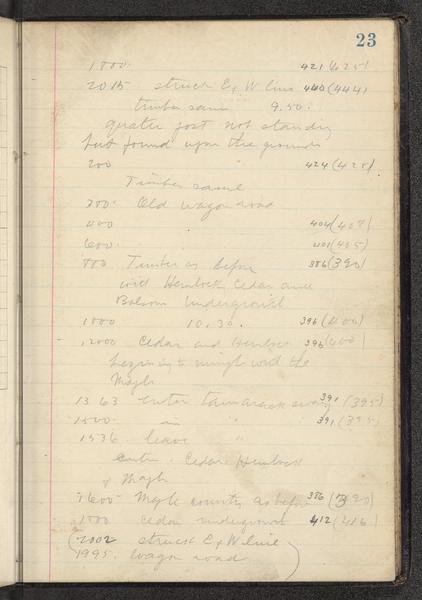 23
1800. 421 (425)
2015 struck E & W line 440 (444)
timber same 9.50.
quarter post not standing
but found upon the ground
200 424 (428)
Timber same
300. Old wagon road
400 404 (408)
600. 401 (405)
800 Timber as before 386 (390)
with Hemlock Cedar and
Balsam undergrowth
1000 10.30. 396 (400)
1200 Cedar and Hemlock 396 (400)
beginning to mingle with the
Maple
1363 enter tamarack swamp 391 (395)
1500. in " 391 (395)
1536 leave "
enter Cedar Hemlock
& Maple
1600 Maple country as before 386 (390)
1800 cedar undergrowth 412 (416)
(2002 struck E & W line
1995. wagon road )